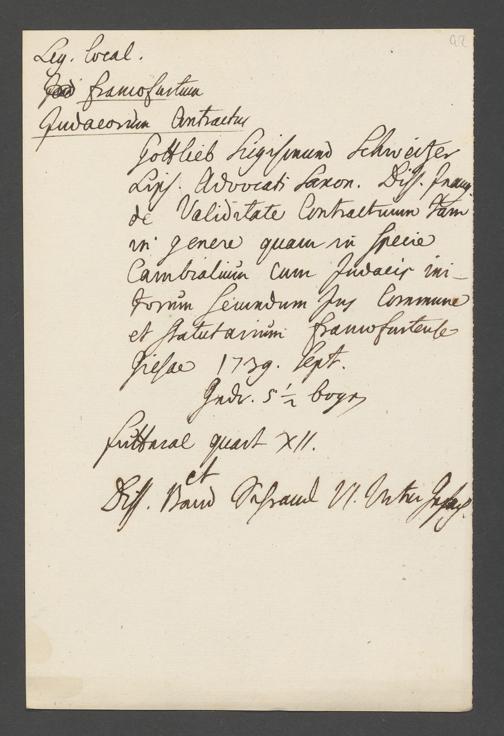 92
Leg. local.
francofurtum
Judaeorum Contractus
Gottlieb Sigismund Schweitzer
Lips. Advocati Saxon. Diss. Inaug.
de Validitate Contractuum tam
in genere quam in specie
Cambialium cum Judaeis ini-
torum secundum Jus Commune
et Statutarium francofurtense
Giesae 1739. Sept.
5 1/2 bogn
futteral quart XII.
et
Diss. Band VI.